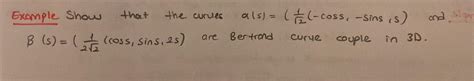 Example Show that the curves α(s) = (1/√2 (-coss, -sins, s) and
β(s) = (1/2√2 (coss, sins, 2s) are Bertrand curve couple in 3D.